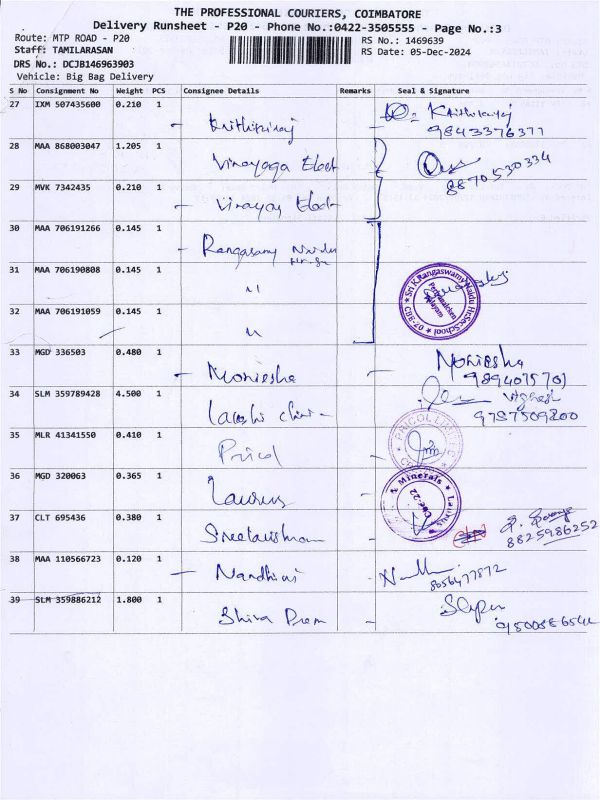 THE PROFESSIONAL COURIERS, COIMBATORE
Delivery Runsheet - P20 - Phone No.:0422-3505555 - Page No.:3
Route: MTP ROAD - P20
RS No.: 1469639
Staff: TAMILARASAN
RS Date: 05-Dec-2024
DRS No.: DCJB146963903
Vehicle: Big Bag Delivery
S No Consignment No Weight PCS Consignee Details Remarks Seal & Signature
27 IXM 507435600 0.210 1
9843376371
28 MAA 868003047 1.205 1 Vinayaga Elect
8870530334
29 MVK 7342435 0.210 1 Vinayag Elect
30 MAA 706191266 0.145 1 Rangasamy Naidu
Hr.Se
31 MAA 706190808 0.145 1 "
Sri K.Rangaswamy Naidu Hr.Sec.School
CBE-20
32 MAA 706191059 0.145 1 "
33 MGD 336503 0.480 1 Moniesha Moniesha
9894075701
34 SLM 359789428 4.500 1 Vignesh
9787509800
35 MLR 41341550 0.410 1 Pricol PRICOL LIMITED
36 MGD 320063 0.365 1 Laurus
N Minerals Laurus
CBE-22
37 CLT 695436 0.380 1
8825986252
38 MAA 110566723 0.120 1 Nandhini
8056477872
39 SLM 359886212 1.800 1 Shiva Prem